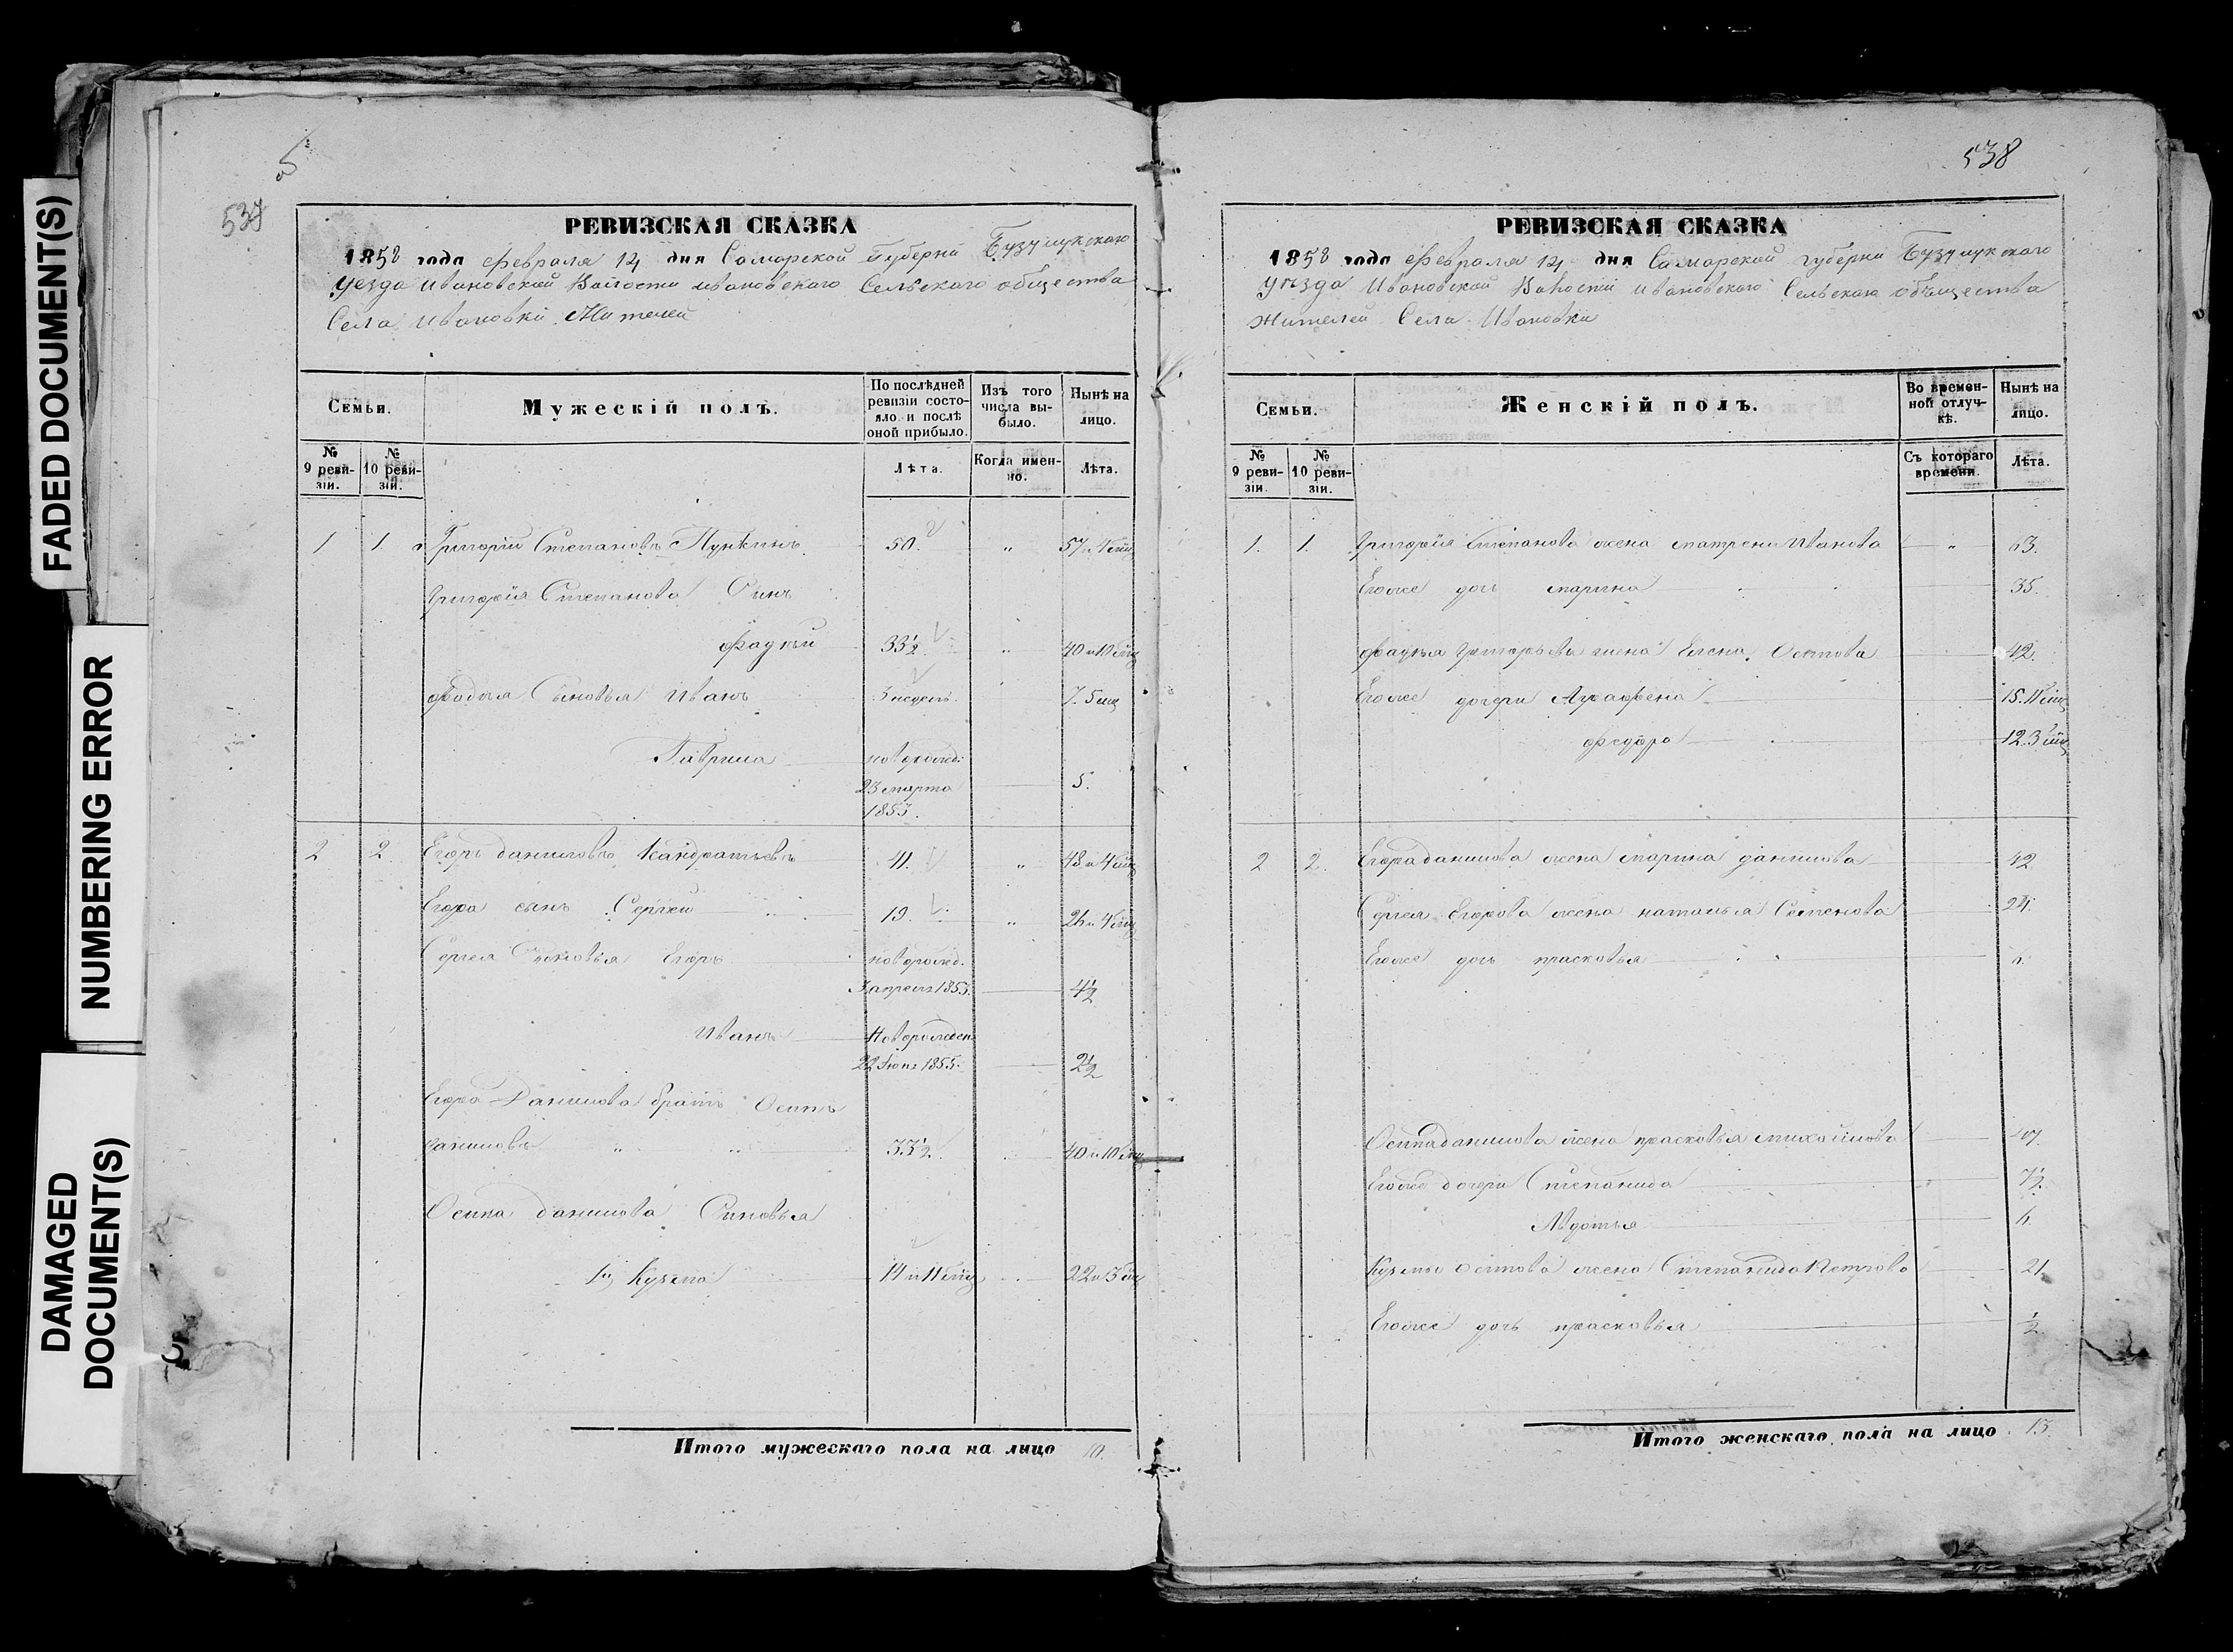 FADED DOCUMENT(S)
NUMBERING ERROR
DAMAGED
DOCUMENT(S)
537
РЕВИЗСКАЯ СКАЗКА
1858 года февраля 14 дня Самарской Губерни Бузулукскаго
уезда Ивановской Волости ивановскаго Сельскаго общества
Села Ивановки Жителей
Семьи.
Мужескій полъ.
По послѣдней ревизіи состояло и послѣ оной прибыло.
Изъ того числа выбыло.
Нынѣ на лицо.
№ 9 ревизіи.
№ 10 ревизіи.
Лѣта.
Когда именно.
Лѣта.
1 1. Григорій Степановъ 50. " 57 и 4
Григорія Степанова Синъ
фадѣй 33½ " 40 и 10
фадѣя Сыновья Иванъ 3 недель 7. 5
Гаврила новорожд:
23 марта 5.
1853.
2 2 Егоръ даниловъ Кандратьевъ 41. " 48 и 4
Егора сынъ Сергей 19. " 26 и 4
Сергея Сыновья Егоръ новорожд.
апреля 1853. 4½
Иванъ Новорожден
22 Июня 1855. 2½
Егора Данилова братъ Осипъ
даниловъ " " 33½ 40 и 10
Осипа данилова Синовья
1й Кузма 14 и 11 22 и 3
Итого мужескаго пола на лицо 10.
538
РЕВИЗСКАЯ СКАЗКА
1858 года февраля 14 дня Самарской губерни Бузулукскаго
уезда Ивановской Волости ивановскаго Сельскаго общества
жителей Села Ивановки
Семьи.
Женскій полъ.
Во временной отлучкѣ.
Нынѣ на лицо.
№ 9 ревизіи.
№ 10 ревизіи.
Съ котораго времени.
Лѣта.
1. 1. Григорія Степанова жена матрена Иванова " 63.
Егоже дочь марина 35.
фадѣя Григорьева жена Елена Осипова 42.
Егоже дочери Аграфена 15. 11
федора 12. 3
2 2. Егора данилова жена марина данилова 42
Сергея Егорова жена наталья Семенова 24.
Егоже дочь прасковья
Осипа данилова жена прасковья михайлова
Егоже дочери Степанида 7½
Авдотья
Кузмы осипова жена Степанида Петрова 21.
Егоже дочь прасковья ½
Итого женскаго пола на лицо 13.